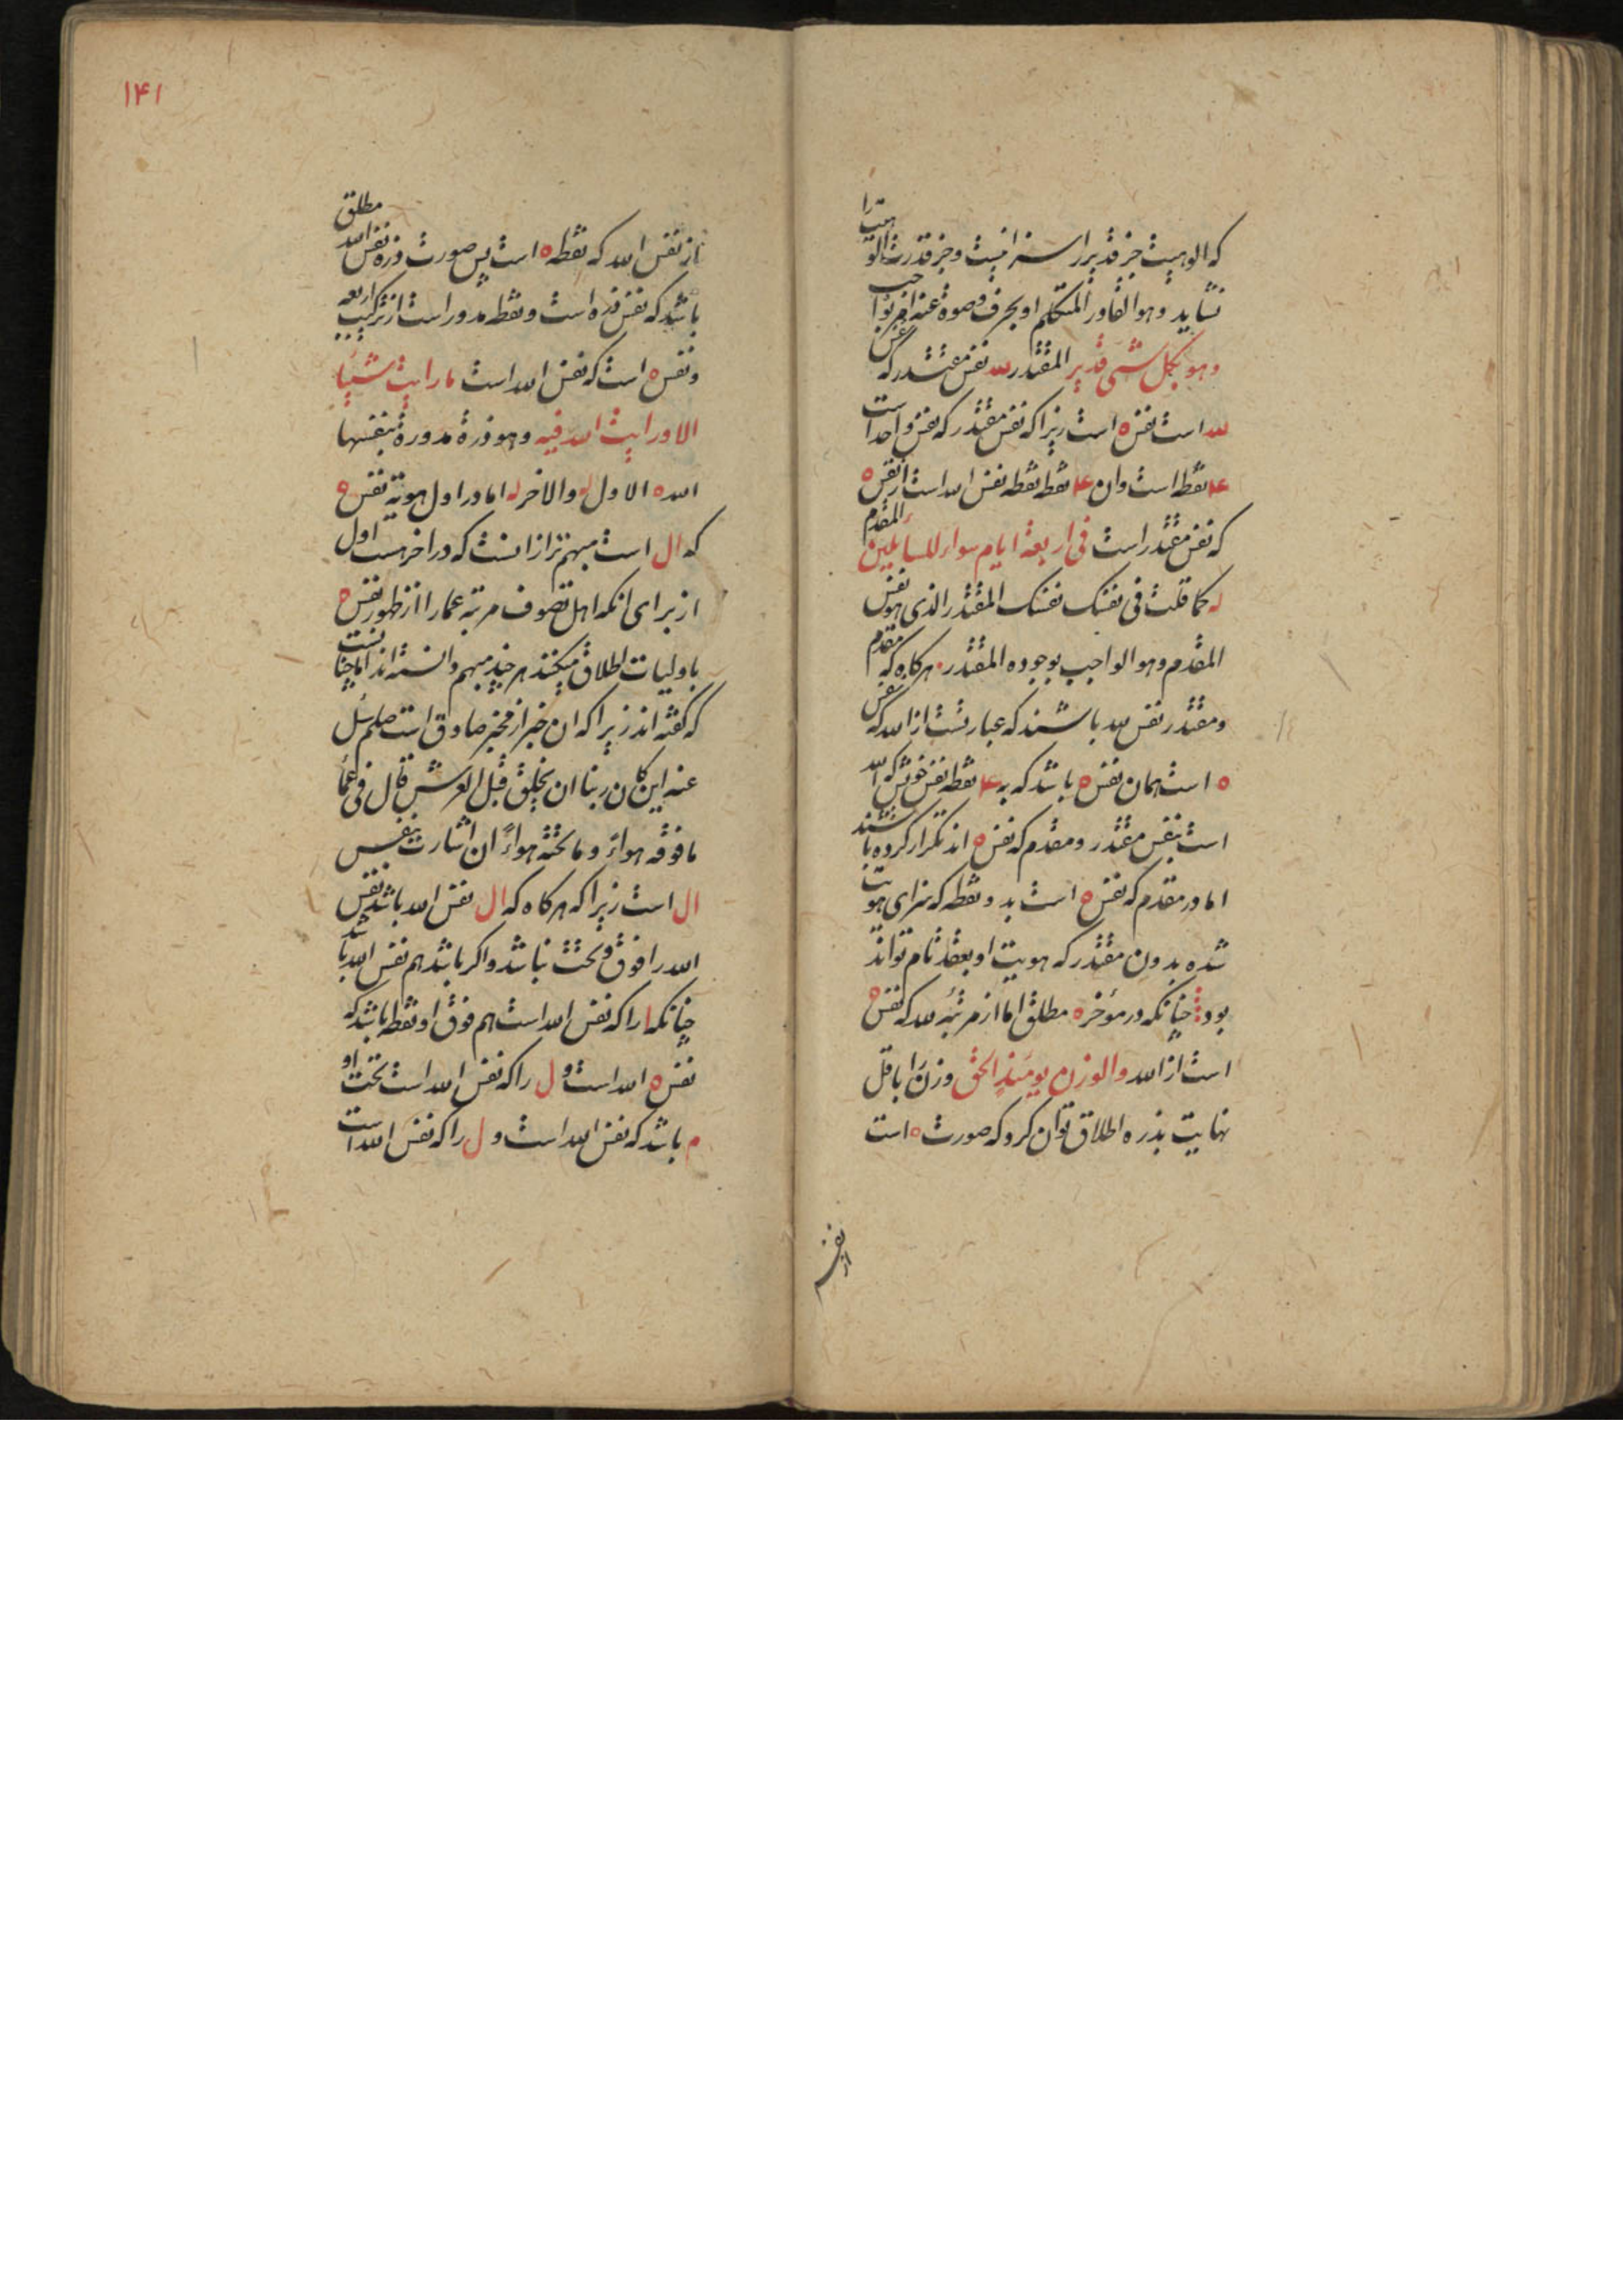 که الوهیت جز قدیر را سزا نیست و جز قدرت الوهیت را
نشاید و هو القادر المتکلم او بحرف و صوة عنه
و هو بکل شی قدیر المقتدر لله نفس مقتدر که
لله است نفس ه است زیرا که نفس مقتدر که نفس واحد است
۴ نقطه است وان ۴ نقطه نقطه نفس الله است از نفس ه
که نفس مقتدر است فی اربعة ایام سواء للسایلین المقدم
له کما قلت فی نفسک نفسک المقتدر الذی هو نفس
المقدم و هو الواجب بوجوده المقتدر هرکاه که مقدم
و مقتدر نفس لله باشند که عبارتست از الله که نفس
ه است همان نفس ه باشد که به ۴ نقطه نفس خویش که الله
است بنفس مقتدر و مقدم که نفس ه اند تکرار کرده باشند
اما در مقدم که نفس ه است بدو نقطه که سزای هویت
شده بدون مقتدر که هویت او بعقد تام تواند
بود چنانکه در مؤخره مطلق اما از مرتبه لله که نفس ه
است از الله والوزن یومئذ الحق وزن را باقل
نهایت بذره اطلاق توان کرد که صورت ه است
از نفس
۱۴۱
از نفس الله که نقطه ه است پس صورت ذره نفس الله مطلق
باشد که نفس ذره است و نقطه مدور است از ترکیب اربعه
و نفس ه است که نفس الله است ما رایت شییا
الا ورایت الله فیه و هو ذرة مدورة بنفسها
الله ه الاول له والاخر له اما در اول هویة نفس ه
که ال است مبهم تر از انست که در اخر هست اول
از برای انکه اهل تصوف مرتبه عما را از ظهور نفس ه
باولیات اطلاق میکنند هر چند مبهم دانسته اند اما چنانست
که کفته اند زیرا که ان خبر از مخبر صادق است صلعم سئل
عنه این کان ربنا ان یخلق قبل العرش قال فی عما
ما فوقه هواء و ما تحته هواء ان اشارت بنفس
ال است زیرا که هرکاه که ال نفس الله باشد نفس
الله را فوق و تحت نباشد و اکر باشد هم نفس الله باشد
چنانکه ا را که نفس الله است هم فوق او نقطه باشد که
نفس ه الله است و ل را که نفس الله است تحت او
م باشد که نفس الله است و ل را که نفس الله است